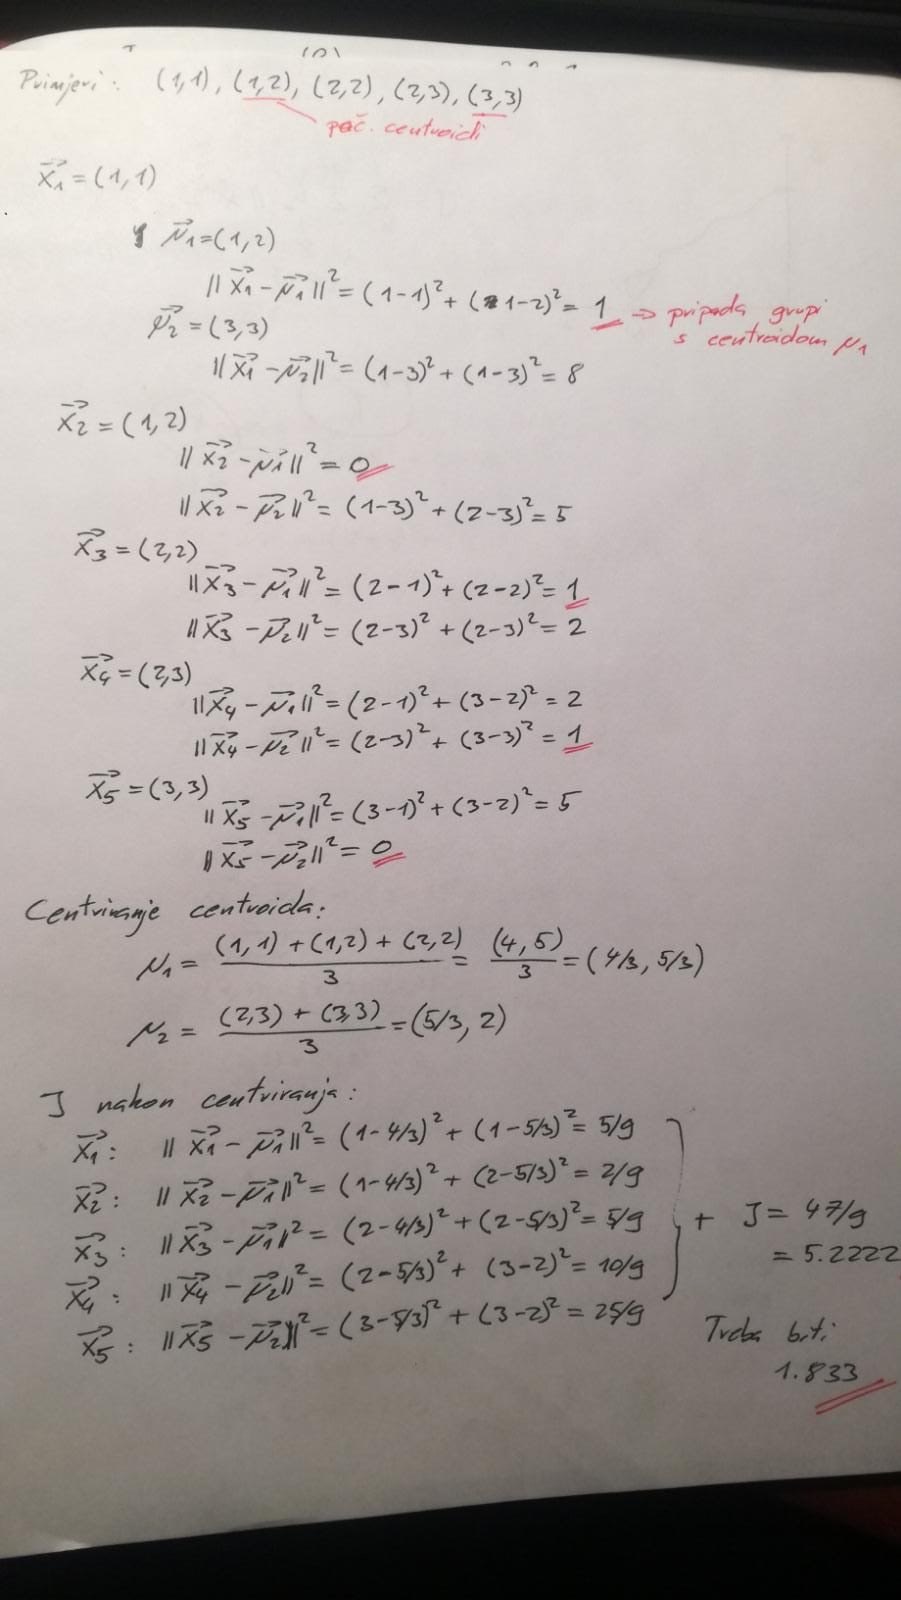 Primjeri: (1,1), (1,2), (2,2), (2,3), (3,3)
poč. centroidi
x₁ = (1,1)
μ₁ = (1,2)
||x₁ - μ₁||² = (1-1)² + (1-2)² = 1 → pripada grupi
s centroidom μ₁
μ₂ = (3,3)
||x₁ - μ₂||² = (1-3)² + (1-3)² = 8
x₂ = (1,2)
||x₂ - μ₁||² = 0
||x₂ - μ₂||² = (1-3)² + (2-3)² = 5
x₃ = (2,2)
||x₃ - μ₁||² = (2-1)² + (2-2)² = 1
||x₃ - μ₂||² = (2-3)² + (2-3)² = 2
x₄ = (2,3)
||x₄ - μ₁||² = (2-1)² + (3-2)² = 2
||x₄ - μ₂||² = (2-3)² + (3-3)² = 1
x₅ = (3,3)
||x₅ - μ₁||² = (3-1)² + (3-2)² = 5
||x₅ - μ₂||² = 0
Centriranje centroida:
μ₁ = ((1,1) + (1,2) + (2,2))/3 = (4,5)/3 = (4/3, 5/3)
μ₂ = ((2,3) + (3,3))/3 = (5/3, 2)
J nakon centriranja:
x₁: ||x₁ - μ₁||² = (1-4/3)² + (1-5/3)² = 5/9
x₂: ||x₂ - μ₁||² = (1-4/3)² + (2-5/3)² = 2/9
x₃: ||x₃ - μ₁||² = (2-4/3)² + (2-5/3)² = 5/9 + J = 47/9
x₄: ||x₄ - μ₂||² = (2-5/3)² + (3-2)² = 10/9 = 5.2222
x₅: ||x₅ - μ₂||² = (3-5/3)² + (3-2)² = 25/9
Treba biti
1.833